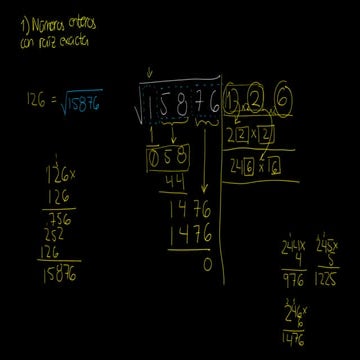 1) Números enteros
con raíz exacta
126 = √15876
√15876
1 2 6
2 2 x 2
058
24 6 x 6
44
1476
1476
0
126x
126
756
252
126
15876
244x
4
976
245x
5
1225
246x
6
1476